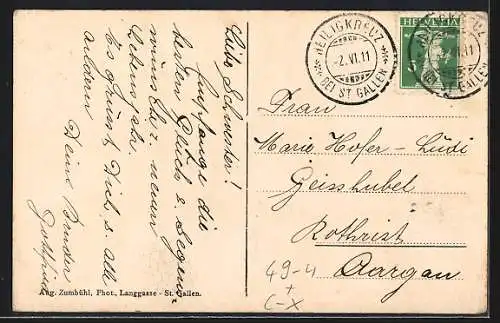 Liebe Schwester!
Empfange die
besten Glück & Segens-
wünsche z. neuen
Lebensjahr.
Es grüsst Dich & alle
andern
Deine Bruder
Gottfried
HEILIGKREUZ
-2.VI.11
BEI ST GALLEN
HELVETIA
Frau
Marie Hofer-Lüdi
Geisshubel
Rothrist
Aargau
49-4
+
C-X
Aug. Zumbühl, Phot., Langgasse - St. Gallen.